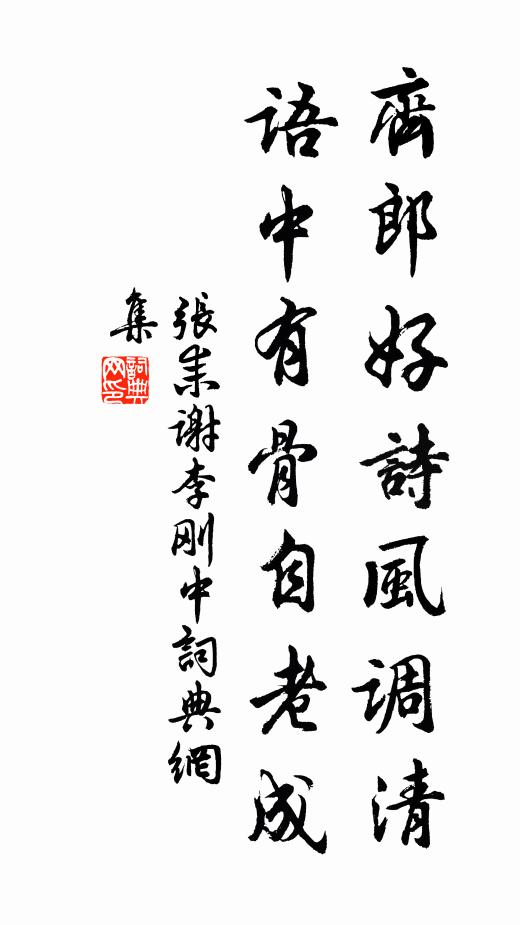 齊郎好詩風調清
語中有骨自老成
張耒謝李剛中詞典網
集
詞典網印